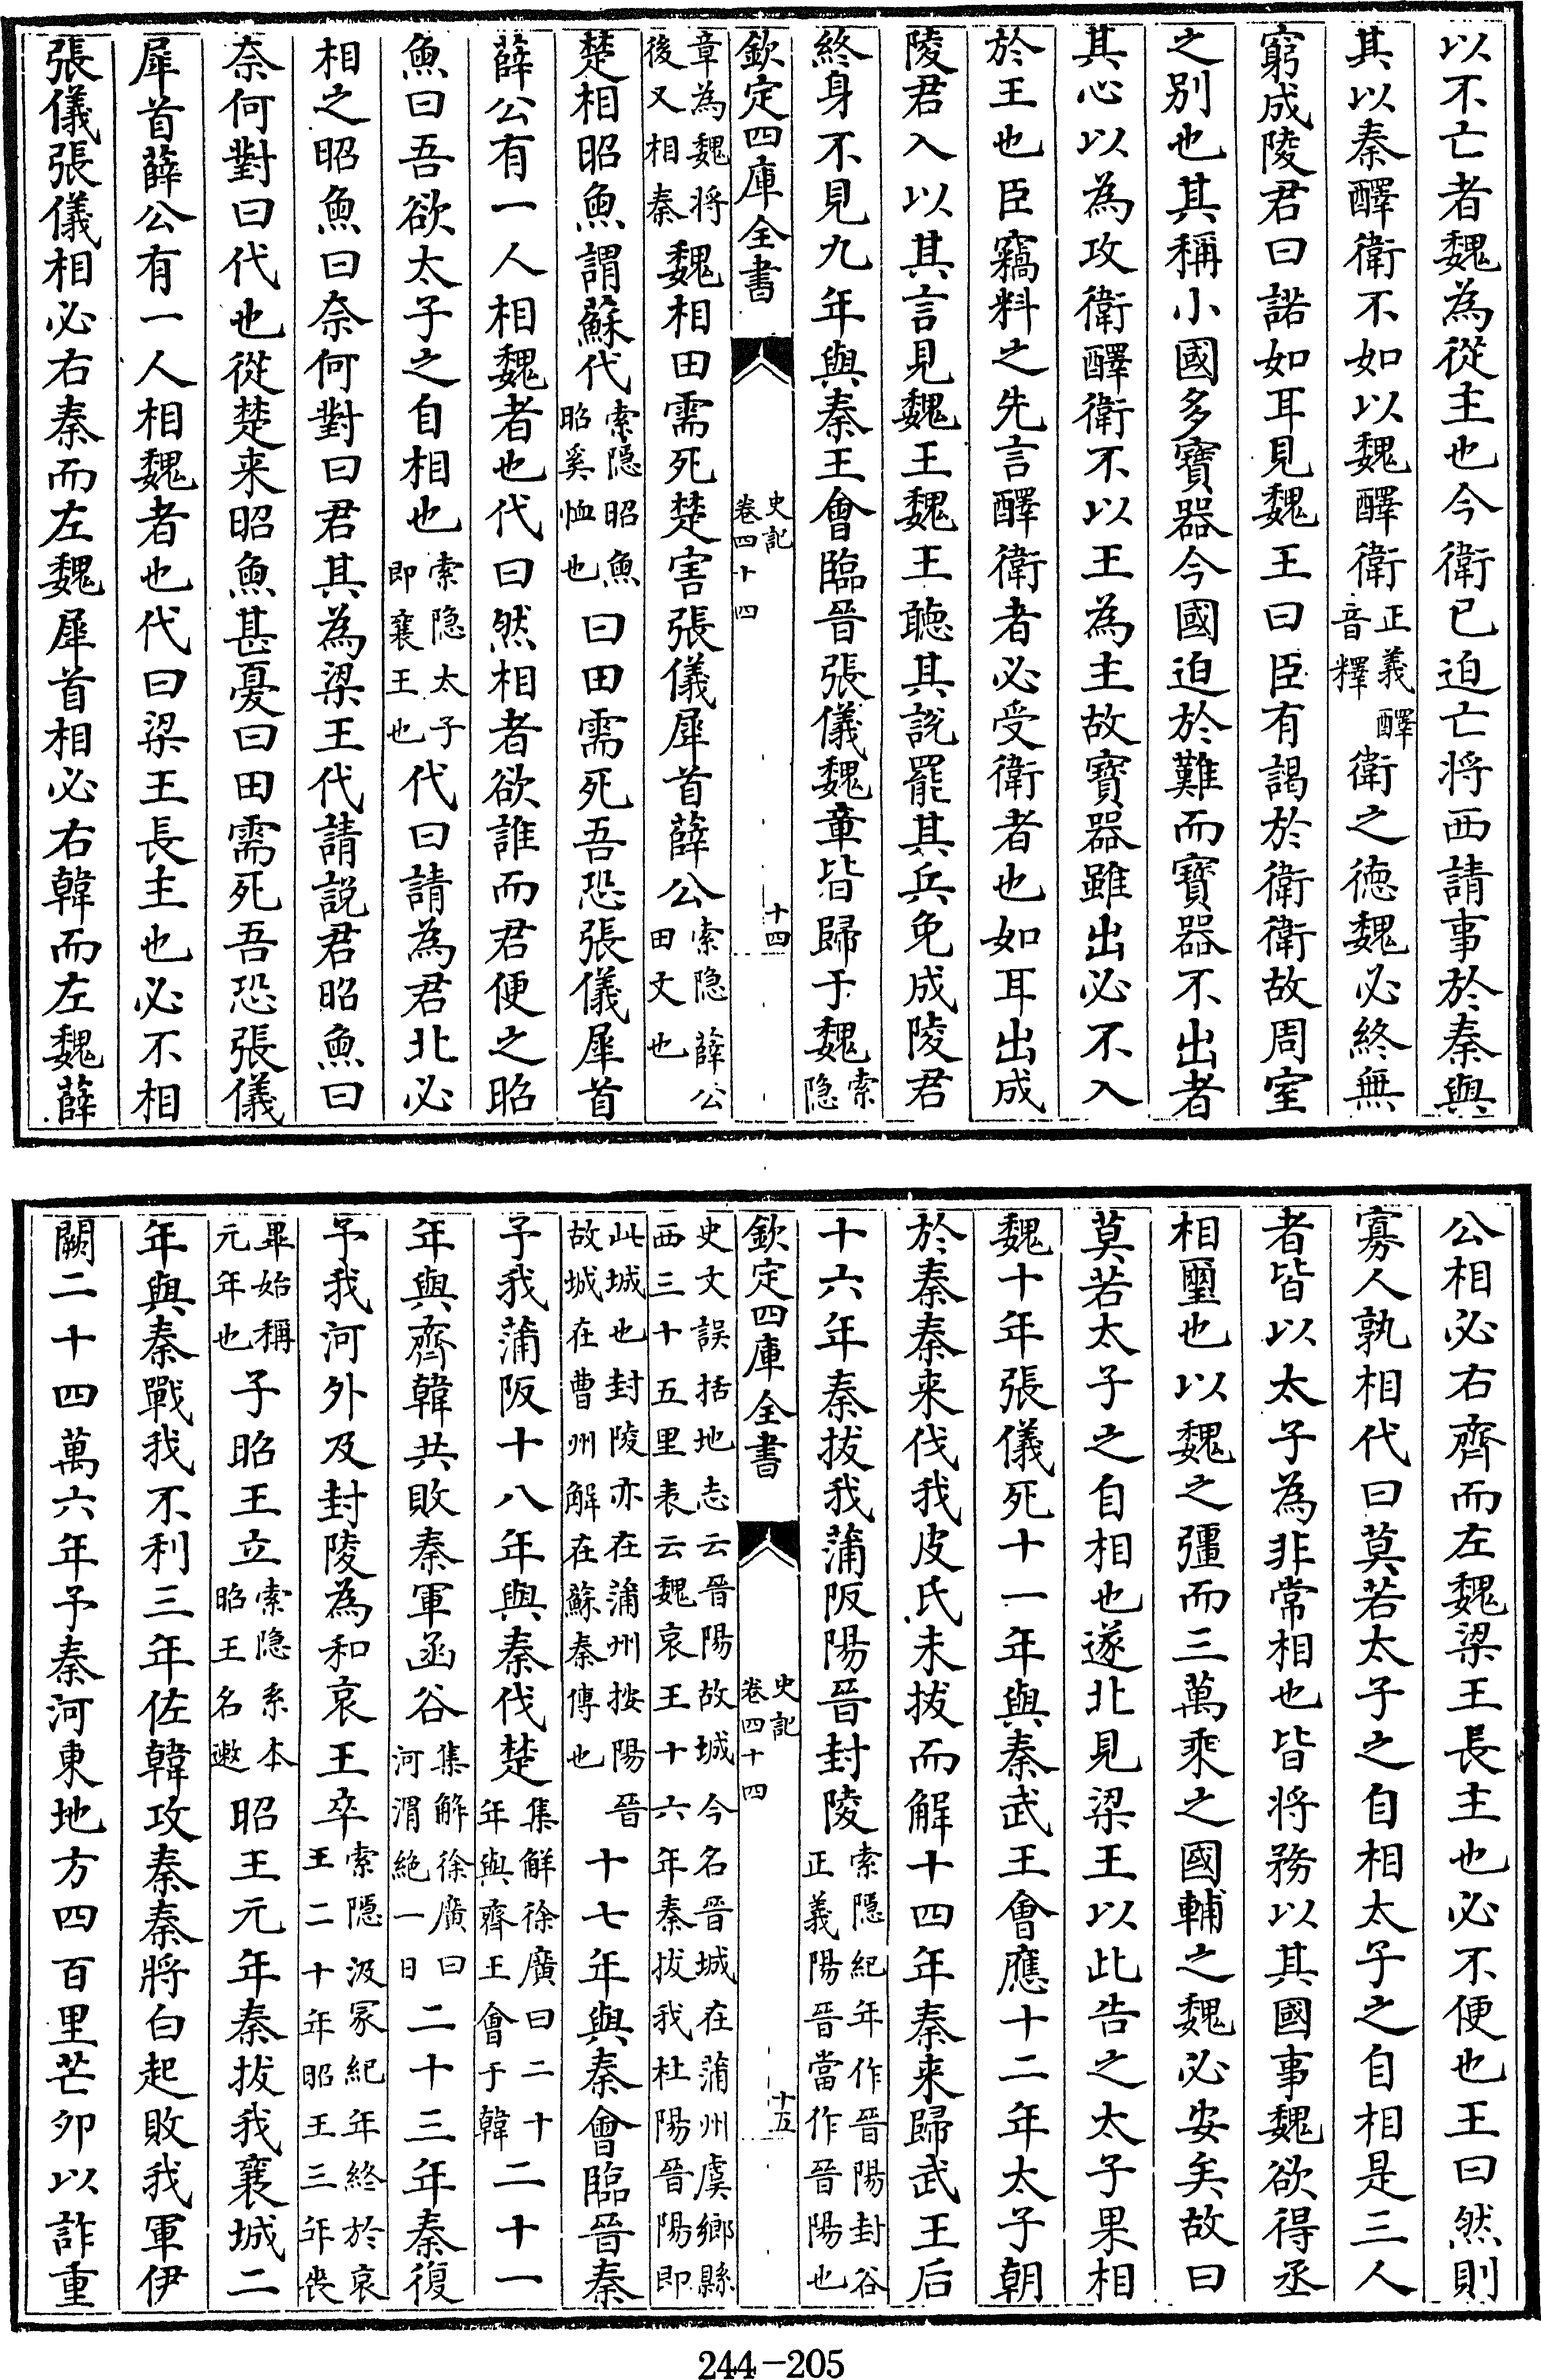 以不亡者魏為從主也今衛已迫亡将西請事於秦與
其以秦醳衛不如以魏醳衛正義醳音釋衛之徳魏必終無
窮成陵君曰諾如耳見魏王曰臣有謁於衛衛故周室
之别也其稱小國多寳器今國迫於難而寳器不出者
其心以為攻衛醳衛不以王為主故寳器雖出必不入
於王也臣竊料之先言醳衛者必受衛者也如耳出成
陵君入以其言見魏王魏王聽其説罷其兵免成陵君
終身不見九年與秦王會臨晉張儀魏章皆歸于魏索隠
欽定四庫全書 史記卷四十四 十四
章為魏将後又相秦魏相田需死楚害張儀犀首薛公索隠薛公田文也
楚相昭魚謂蘇代索隠昭魚昭奚恤也曰田需死吾恐張儀犀首
薛公有一人相魏者也代曰然相者欲誰而君便之昭
魚曰吾欲太子之自相也索隠太子即襄王也代曰請為君北必
相之昭魚曰奈何對曰君其為梁王代請説君昭魚曰
奈何對曰代也從楚来昭魚甚憂曰田需死吾恐張儀
犀首薛公有一人相魏者也代曰梁王長主也必不相
張儀張儀相必右秦而左魏犀首相必右韓而左魏薛
公相必右齊而左魏梁王長主也必不便也王曰然則
寡人孰相代曰莫若太子之自相太子之自相是三人
者皆以太子為非常相也皆将務以其國事魏欲得丞
相璽也以魏之彊而三萬乘之國輔之魏必安矣故曰
莫若太子之自相也遂北見梁王以此告之太子果相
魏十年張儀死十一年與秦武王會應十二年太子朝
於秦秦来伐我皮氏未拔而解十四年秦来歸武王后
十六年秦拔我蒲阪陽晉封陵索隠紀年作晉陽封谷正義陽晉當作晉陽也
欽定四庫全書 史記卷四十四 十五
史文誤括地志云晉陽故城今名晉城在蒲州虞鄉縣西三十五里表云魏哀王十六年秦拔我杜陽晉陽即
此城也封陵亦在蒲州按陽晉故城在曹州解在蘇秦傳也十七年與秦會臨晉秦
予我蒲阪十八年與秦伐楚集解徐廣曰二十年與齊王會于韓二十一
年與齊韓共敗秦軍函谷集解徐廣曰河渭絶一日二十三年秦復
予我河外及封陵為和哀王卒索隠汲冢紀年終於哀王二十年昭王三年喪
畢始稱元年也子昭王立索隠系本昭王名遫昭王元年秦拔我襄城二
年與秦戰我不利三年佐韓攻秦秦將白起敗我軍伊
闕二十四萬六年予秦河東地方四百里芒卯以詐重
244-205